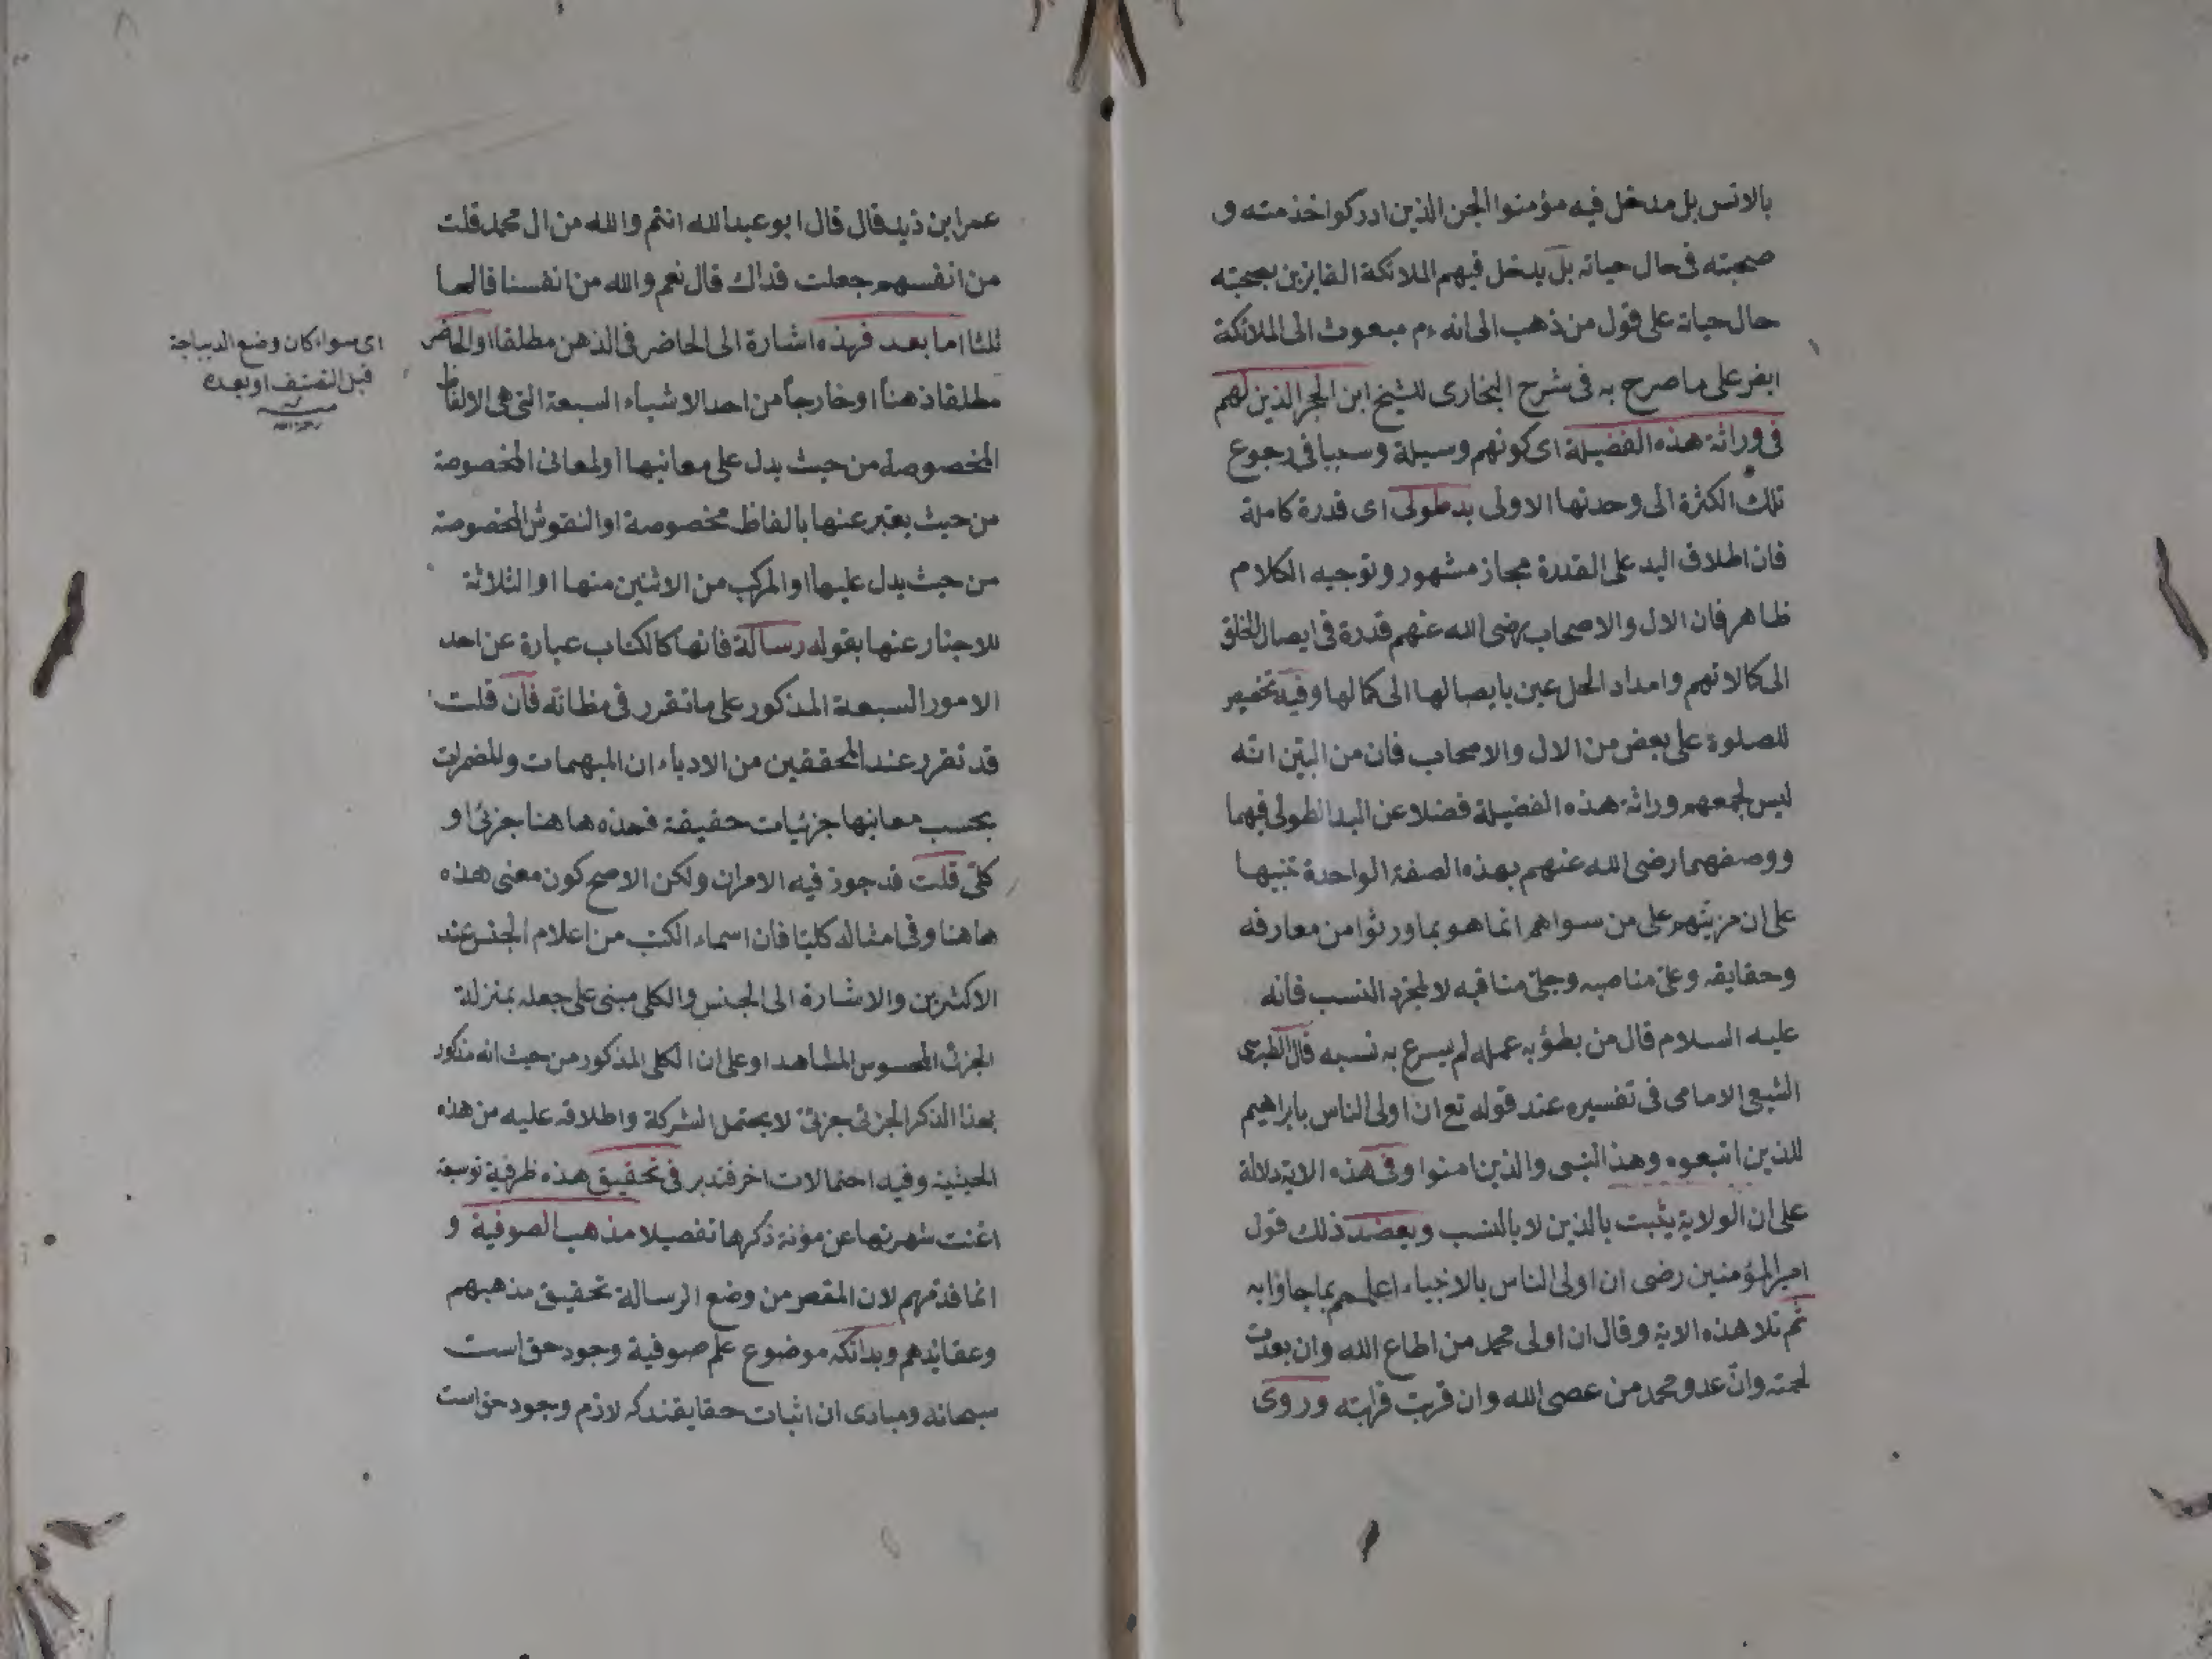 بالانس بل مدخل فيه مؤمنوا الجن الذين ادركوا خدمته و
صحبته فى حال حياته بل يدخل فيهم الملائكة الفايزين بصحبته
حال حياته على قول من ذهب الى انه ءم مبعوث الى الملائكة
ايضر على ما صرح به فى شرح البخارى للشيخ ابن الحجر الذين لهم
فى وراثة هذه الفضيلة اى كونهم وسيلة وسببا فى رجوع
تلك الكثرة الى وحدتها الاولى يد طولى اى قدرة كاملة
فان اطلاق اليد على القدرة مجاز مشهور وتوجيه الكلام
ظاهر فان الال والاصحاب رضى الله عنهم قدرة فى ايصال الخلق
الى كمالاتهم وامداد بايصالها الى كمالها وفيه تخصيص
للصلوة على بعض من الال والاصحاب فان من البين انه
ليس لجمعهم وراثة هذه الفضيلة فضلا عن اليد الطولى فيها
ووصفهما رضى الله عنهم بهذه الصفة الواحدة تنبيها
على ان مزيتهم على من سواهم انما هو بما ورثوا من معارفه
وحقايقه وعلىّ مناصبه وجلىّ مناقبه لا لمجرد النسب فانه
عليه السلام قال من بطؤ به عمله لم يسرع به نسبه قال الطبرسى
الشيعى الامامى فى تفسيره عند قوله تع ان اولى الناس بابراهيم
للذين اتبعوه وهذا النبى والذين امنوا وفى هذه الاية دلالة
على ان الولاية يثبت بالدين لا بالنسب ويعضد ذلك قول
امير المؤمنين رضى ان اولى الناس بالانبياء اعلمهم بما جاؤا به
ثم تلا هذه الاية وقال ان اولى محمد من اطاع الله وان بعدت
لحمته وانّ عدو محمد من عصى الله وان قربت قرابته وروى
عمر ابن ذيد قال قال ابو عبد الله انتم والله من ال محمد قلت
من انفسهم جعلت فداك قال نعم والله من انفسنا قالها
ثلثا اما بعد فهذه اشارة الى الحاضر فى الذهن مطلقا او الحاضر
مطلقا ذهناً او خارجاً من احد الاشياء السبعة التى هى الالفاظ
المخصوصة من حيث يدل على معانيها او المعانى المخصوصة
من حيث يعتبر عنها بالفاظ مخصوصة او النقوش المخصوصة
من حيث يدل عليها او المركب من الاثنين منها او الثلاثة
للاخبار عنها بقوله رسالة فانها كالكتاب عبارة عن احد
الامور السبعة المذكور على ما تقرر فى مظانه فان قلت
قد تقرر عند المحققين من الادباء ان المبهمات والمضمرات
بحسب معانيها جزئيات حقيقة فهذه هاهنا جزئى او
كلىّ قلت قد جوز فيه الامران ولكن الاصح كون معنى هذه
هاهنا وفى امثاله كليا فان اسماء الكتب من اعلام الجنس عند
الاكثرين والاشارة الى الجنس والكلى مبنى على جعله بمنزلة
الجزئ المحسوس المشاهد او على ان الكلى المذكور من حيث انه مذكور
بهذا الذكر الجزئى جزئى لا يحتمل الشركة واطلاقه عليه من هذه
الحيثية وفيه احتمالات اخر فتدبر فى تحقيق هذه ظرفية توسعة
اغنت شهرتها عن مؤنة ذكرها تفصيلا مذهب الصوفية و
انما قدمهم لان المقصر من وضع الرسالة تحقيق مذهبهم
وعقايدهم وبدانكه موضوع علم صوفية وجود حق است
سبحانه ومبادى ان اثبات حقايقند كه لازم وجود حق است
اى سواء كان وضع الديباجة
قبل التصنيف او بعده